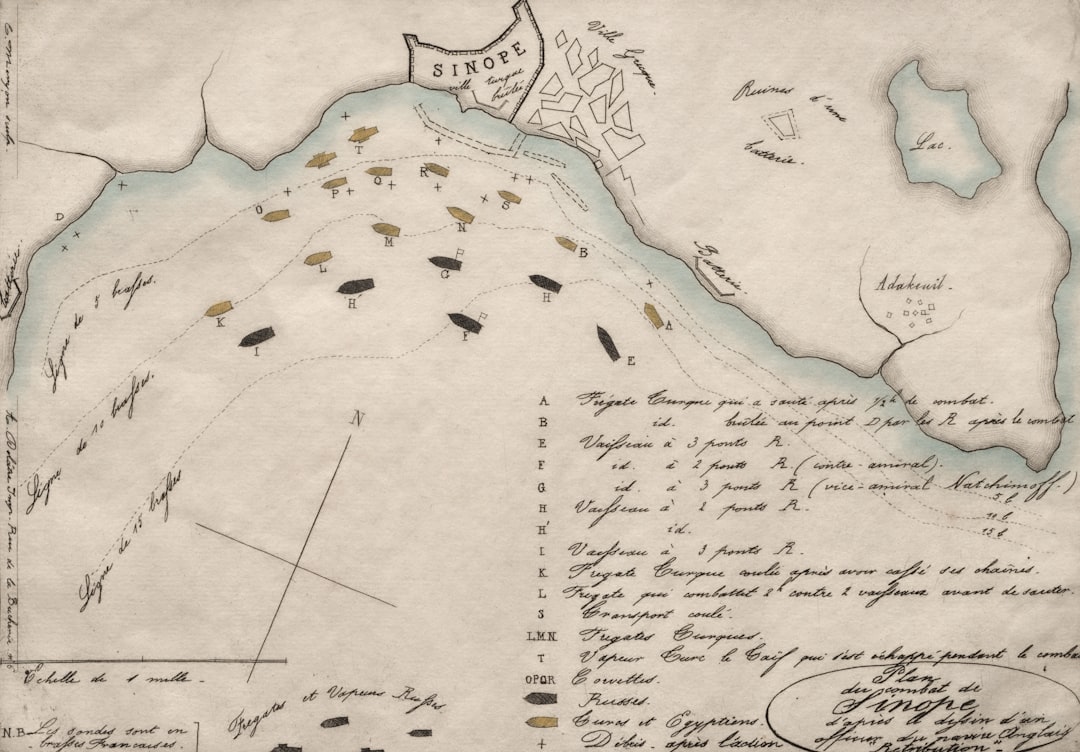 SINOPE
ville turque
brûlée
Ville Grecque.
Ruines d'une
batterie.
Lac.
Batterie
Adakeuil.
T
Q
R
P
O
S
N
M
B
L
G
H'
H
K
F
A
I
E
D
Batterie
Ligne de 5 brasses.
Ligne de 10 brasses.
Ligne de 15 brasses
N
A Frégate Turque qui a sauté après 1/2 h de combat.
B id. brûlée au point D par les R après le combat
E Vaisseau à 3 ponts R.
F id. à 2 ponts R. (contre-amiral).
G id. à 3 ponts R (vice-amiral Natchimoff.)
H Vaisseau à 2 ponts R.
H' id.
I Vaisseau à 3 ponts R.
K Fregate Turque coulée après avoir cassé ses chaînes.
L Fregate qui combattet 2h contre 2 vaisseaux avant de sauter.
S Transport coulé.
LMN Fregates Turques.
T Vapeur Turc le Taïf qui s'est echappé pendant le comba
OPQR Corvettes.
Russes.
Turcs et Egyptiens.
+ Débris après l'action
5 b
10 b
15 b
Echelle de 1 mille.
Fregates et Vapeurs Russes.
N.B. Les sondes sont en
brasses Françaises.
Plan
du combat de
Sinope
d'après le dessin d'un
officier du navire Anglais
"Retribution"